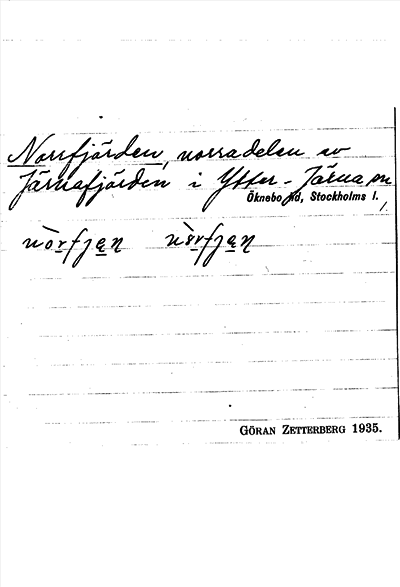 Norrfjärden, norra delen av
Järnafjärden i Ytter-Järna sn,
Öknebo hd, Stockholms l.
nòrfjen nòrfjen
GÖRAN ZETTERBERG 1935.